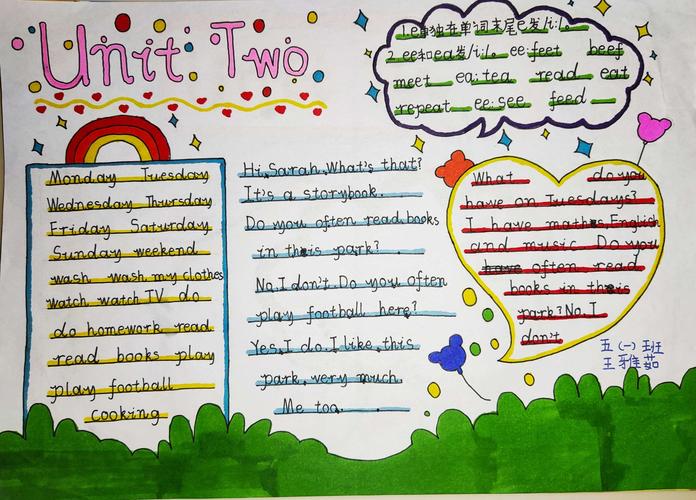 Unit Two
1.e单独在单词末尾e发/i:/。
2.ee和ea发/i:/。ee:feet beef
meet ea:tea read eat
repeat ee:see feed
Monday Tuesday
Wednesday Thursday
Friday Saturday
Sunday weekend
wash wash my clothes
watch watch TV do
do homework read
read books play
play football
cooking
Hi,Sarah.What's that?
It's a storybook.
Do you often read books
in this park?
No,I don't.Do you often
play football here?
Yes,I do.I like this
park very much.
Me too.
What do you
have on Tuesdays?
I have maths,English
and music Do you
often read
books in this
park?No,I
don't
五(一)班
王雅茹